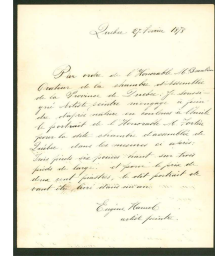 Québec 27 février 1878
Par ordre de l'Honorable
Orateur de la chambre d'assemblée
de la Province de Québec, Je soussi-
gné Artiste peintre m'engage à faire
d'après nature en couleur à l'huile
le portrait de l'Honorable
pour la dite chambre d'assemblée de
Québec, dans les mesures ci
pieds six pouces haut sur trois
pieds de large, et pour le prix de
deux cent piastres, le dit portrait de-
vant être livré dans un an.
Eugène Hamel
artiste peintre.